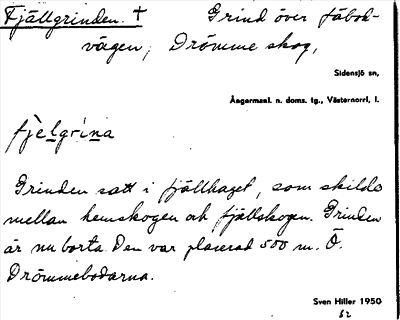 Fjällgrinden. † Grind över fäbod-
vägen, Drömme skog,
Sidensjö sn,
Ångermanl. n. doms. tg., Västernorrl. l.
fjèlgrina
Grinden satt i fjällhaget, som skilde
mellan hemskogen och fjällskogen. Grinden
är nu borta. Den var placerad 500 m. Ö.
Drömmebodarna.
Sven Hiller 1950